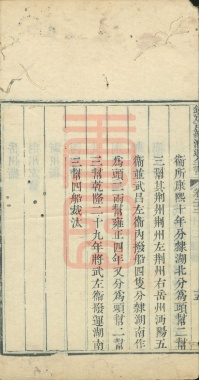 衞所康熙十年分隸湖北分為頭幫二幫
三幫其荆州荆州左荆州右岳州沔陽五
衞並武昌左衞內撥船四隻分隸湖南作
為頭二兩幫雍正四年又分為頭幫二幫
三幫乾隆二十九年將武左衞撥運湖南
三幫四船裁汰